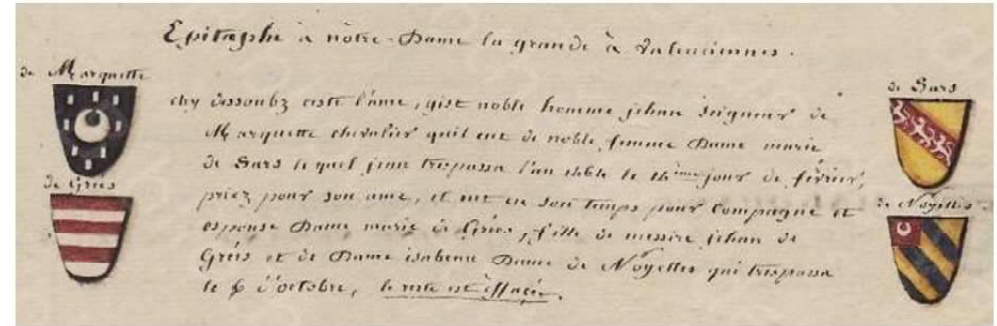 Epitaphe à nôtre-Dame la grande à Valenciennes.
de Marquette
de Sars
chy dessoubz ceste l'ame, gist noble homme jehan seigneur de
Marquette chevalier quil eut de noble femme Dame marie
de Sars lequel jean trespassa l'an le 14ième jour de février,
priez pour son ame, et eut en son temps pour compagne et
de Griés
de Noyelles
espouse Dame marie de Griés, fille de messire jehan de
Griés et de Dame isabeau Dame de Noyelles qui trespassa
le 6 d'octobre, le reste est effacé.